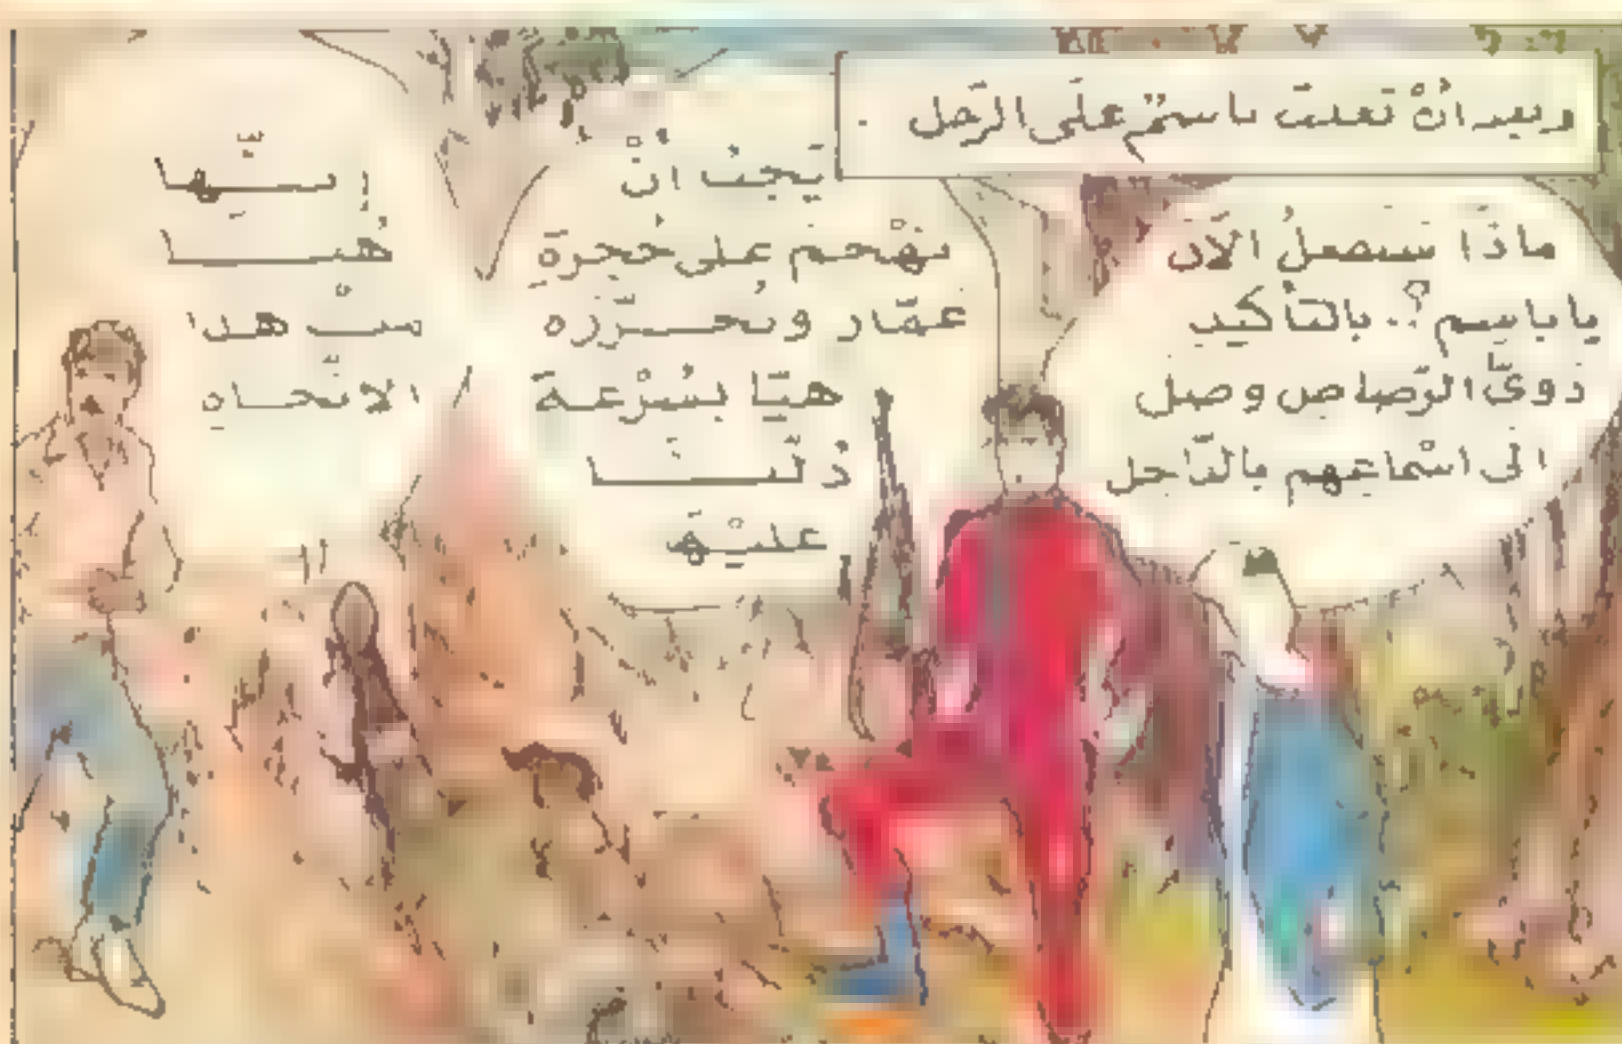 وبعد أنْ تغلبَ باسمٌ على الرّجل .
ماذَا سَنفعلُ الآنَ
يا باسِم ؟.. بالتأكيدِ
دَويُّ الرّصاصِ وصلَ
الى اسْماعِهم بالدّاخِل
يَجبُ انْ
نَهْجمَ على حُجرةِ
عمّار ونُحــرّره
هيّا بسُرْعـةَ
دُلّنــــا
عليْهَا
إنـــّها
هُنــــا
منْ هذا
الاتّجــاهِ